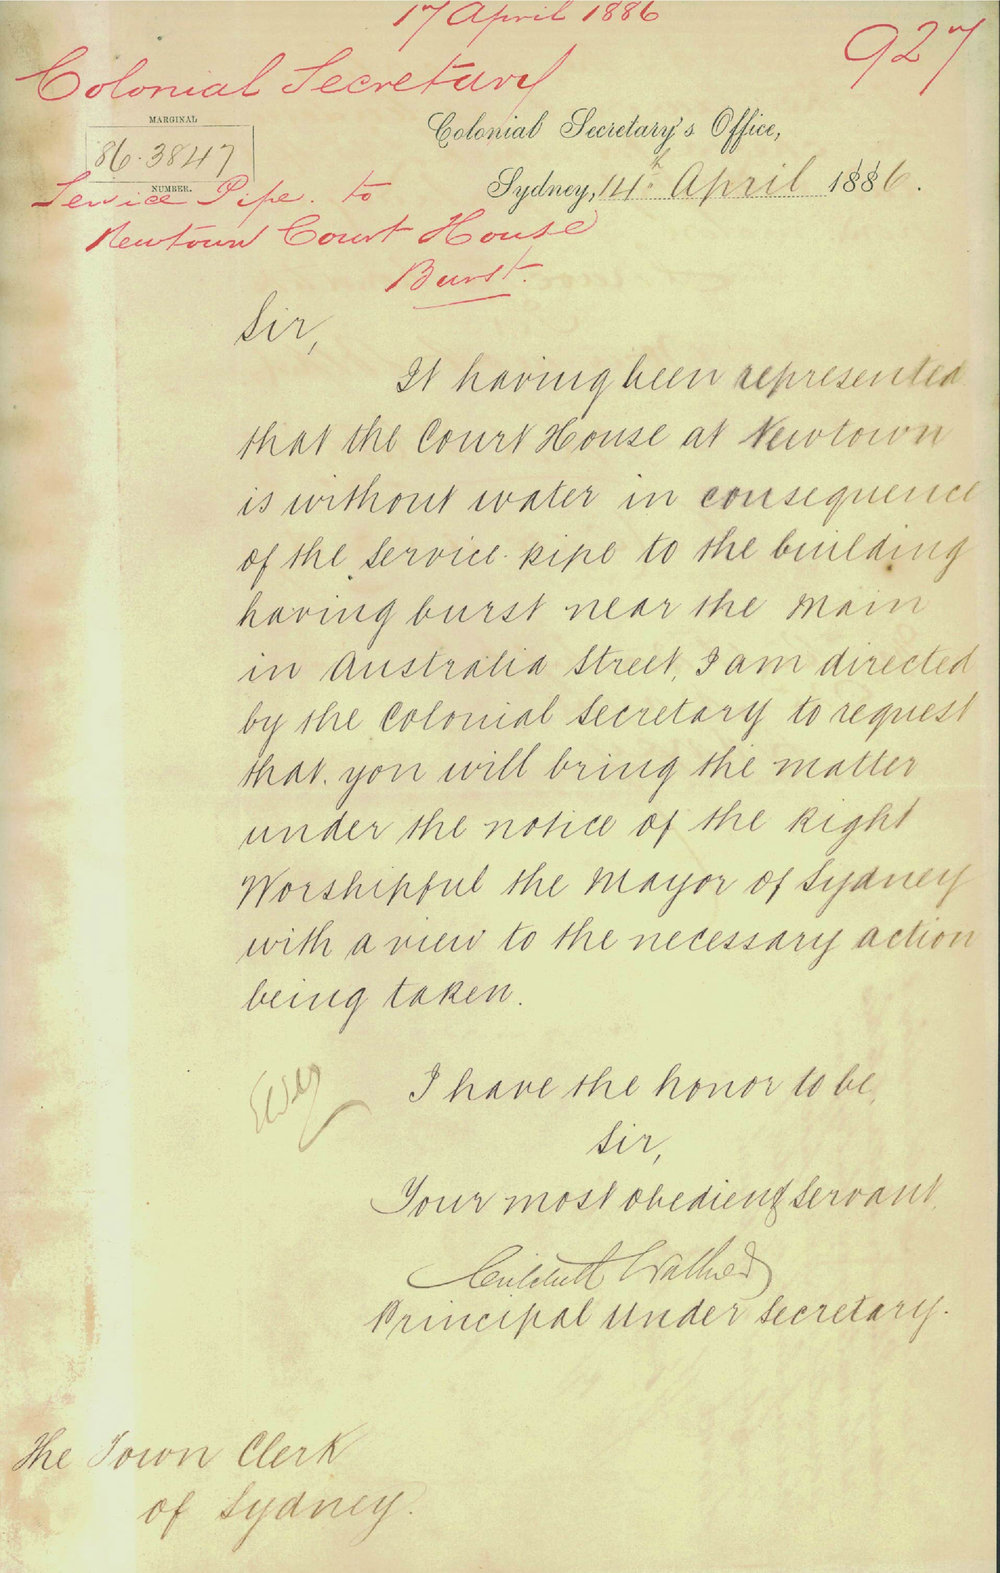 17 April 1886
927
Colonial Secretary
MARGINAL
86.3847
NUMBER.
Colonial Secretary's Office,
Sydney, 14th April 1886.
Service Pipe to
Newtown Court House
Burst.
Sir,
It having been represented
that the Court House at Newtown
is without water in consequence
of the service pipe to the building
having burst near the main
in Australia Street, I am directed
by the Colonial Secretary to request
that you will bring the matter
under the notice of the Right
Worshipful the Mayor of Sydney
with a view to the necessary action
being taken.
I have the honor to be,
Sir,
Your most obedient servant,
Critchett Walker
Principal Under Secretary.
The Town Clerk
of Sydney.